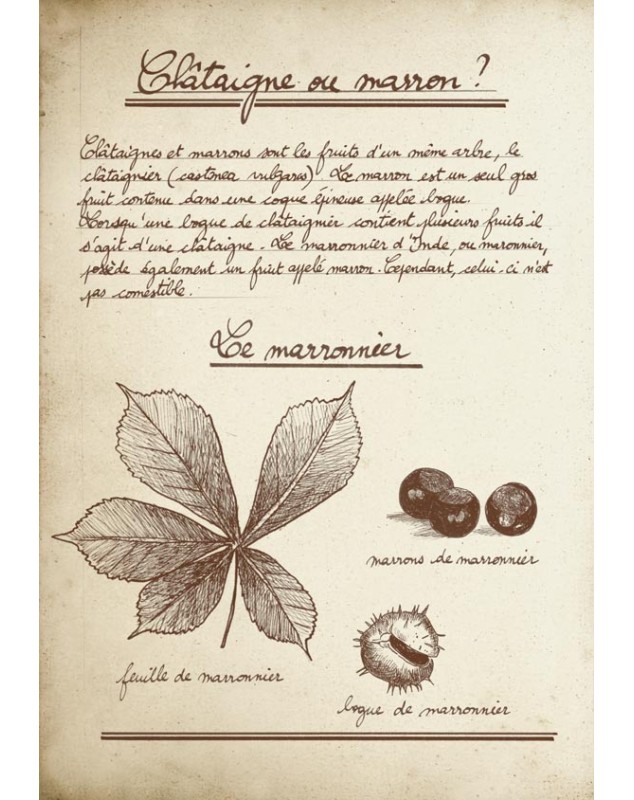 Châtaigne ou marron ?
Châtaignes et marrons sont les fruits d'un même arbre, le
châtaignier (castanea vulgaris). Le marron est un seul gros
fruit contenu dans une coque épineuse appelée bogue.
Lorsqu'une bogue de châtaignier contient plusieurs fruits il
s'agit d'une châtaigne. Le marronnier d'Inde, ou maronnier,
possède également un fruit appelé marron. Cependant, celui-ci n'est
pas comestible.
Le marronnier
marrons de marronnier
feuille de marronnier
bogue de marronnier